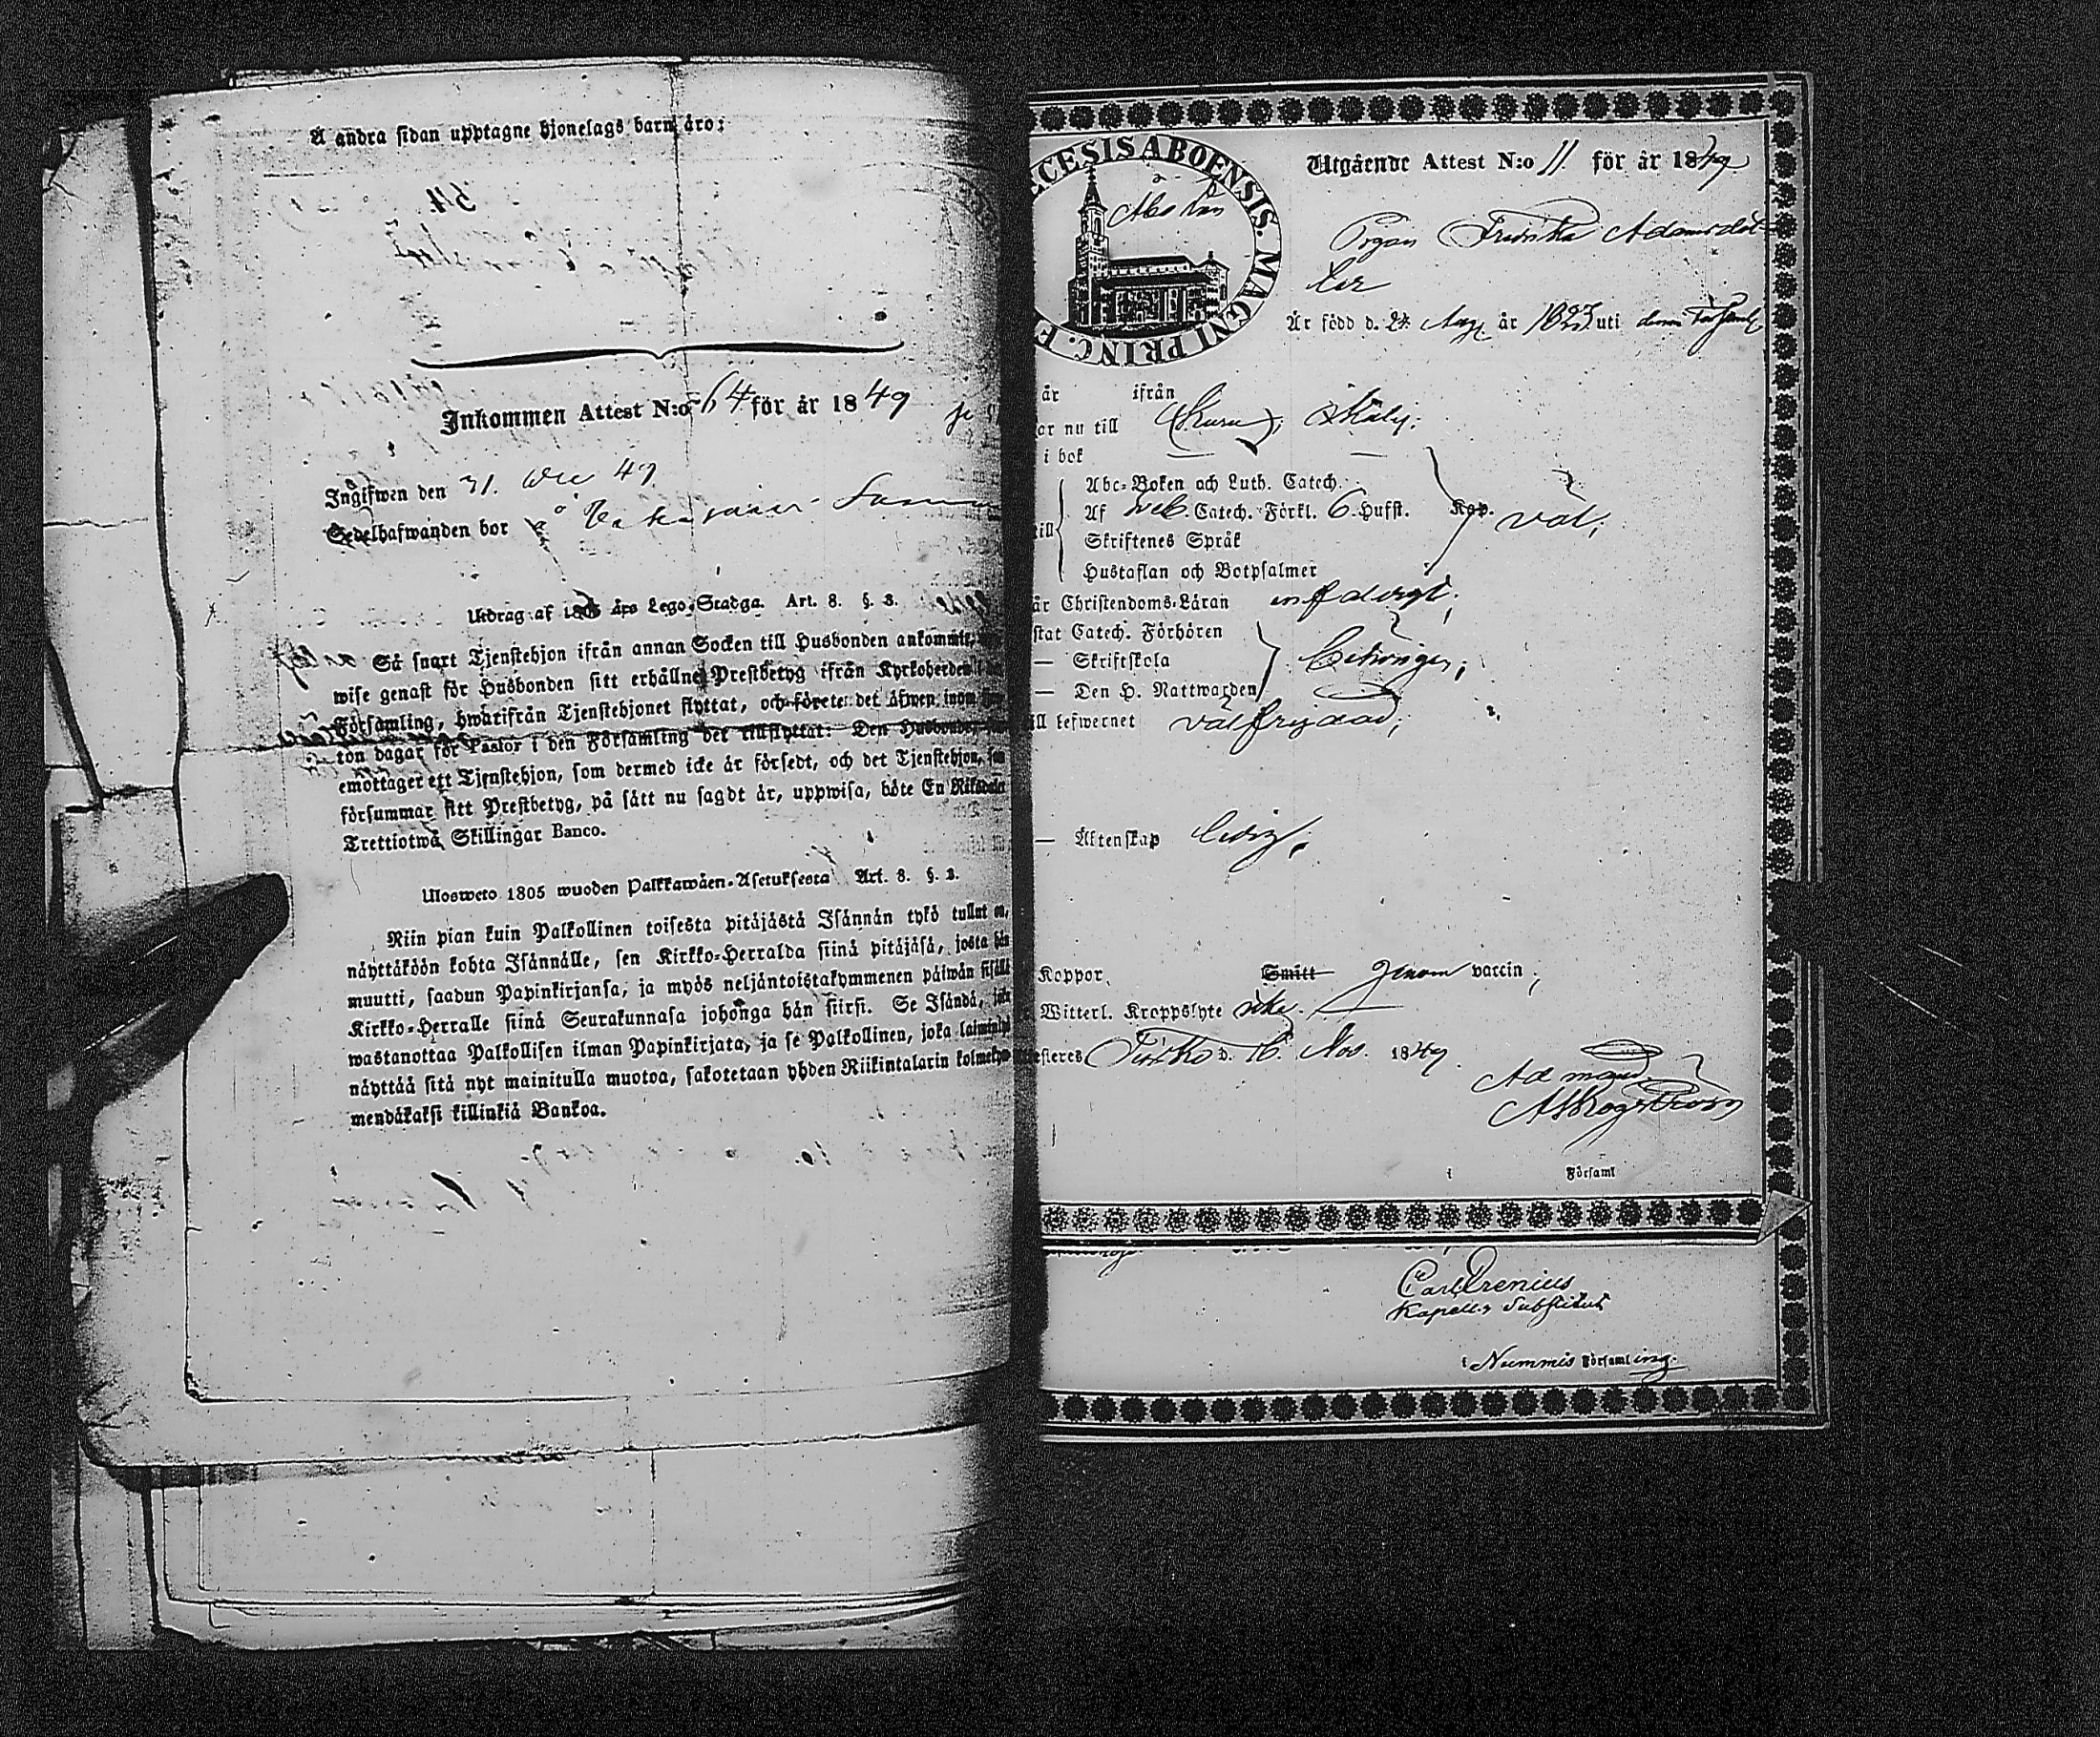 A andra sidan upptagne hjonelags barn äro:
Inkommen Attest N:o 64 för år 1849
Ingifwen den 31. Dec 49
Sedelhafwanden bor å
Utdrag af 1805 års Lego-Stadga. Art. 8. §. 3.
Så snart Tjenstehjon ifrån annan Socken till Husbonden ankommit,
wise genast för Husbonden sitt erhållne Prestbetyg ifrån Kyrkoherden i
Församling, hwarifrån Tjenstehjonet flyttat, och förete det äfwen inom
ton dagar för Pastor i den Församling det tillflyttat: Den Husbonde,
emottager ett Tjenstehjon, som dermed icke är försedt, och det Tjenstehjon, som
försummar sitt Prestbetyg, på sätt nu sagdt är, uppwisa, böte En Riksdaler
Trettiotwå Skillingar Banco.
Ulosweto 1805 wuoden Palkkawäen-Asetuksesta Art. 8. §. 3.
Niin pian kuin Palkollinen toisesta pitäjästä Isännän tykö tullut on,
näyttäköön kohta Isännälle, sen Kirkko-Herralda siinä pitäjäsä, josta hän
muutti, saadun Papinkirjansa, ja myös neljäntoistakymmenen päiwän sisällä
Kirkko-Herralle siinä Seurakunnasa johonga hän siirsi. Se Isändä, joka
wastanottaa Palkollisen ilman Papinkirjata, ja se Palkollinen, joka laiminlyö
näyttää sitä nyt mainitulla muotoa, sakotetaan yhden Riikintalarin kolmekym-
mendäkaksi killinkiä Bankoa.
ECESIS ABOENSIS. MAGNI PRINC. F
Åbo län
Utgående Attest N:o 11. för år 1849
Pigan Fredrika Adamsdot
ter
Är född d. 24 Aug. år 1823 uti denna Församl
år ifrån
or nu till
i bok
Abc-Boken och Luth. Catech.
Af Catech. Förkl. 6 Husst. Kap. väl;
Skriftenes Språk
Hustaflan och Botpsalmer
är Christendoms-Läran
stat Catech. Förhören
— Skriftskola
— Den H. Nattwarden
ill lefwernet välfrejdad;
— Äktenskap ledig;
Koppor, Smitt genom vaccin;
Witterl. Kroppslyte icke.
esteres d. 16. Nov. 1849
i Församl
Carl Orenius
Kapells Substitut
i Nummis Församling.